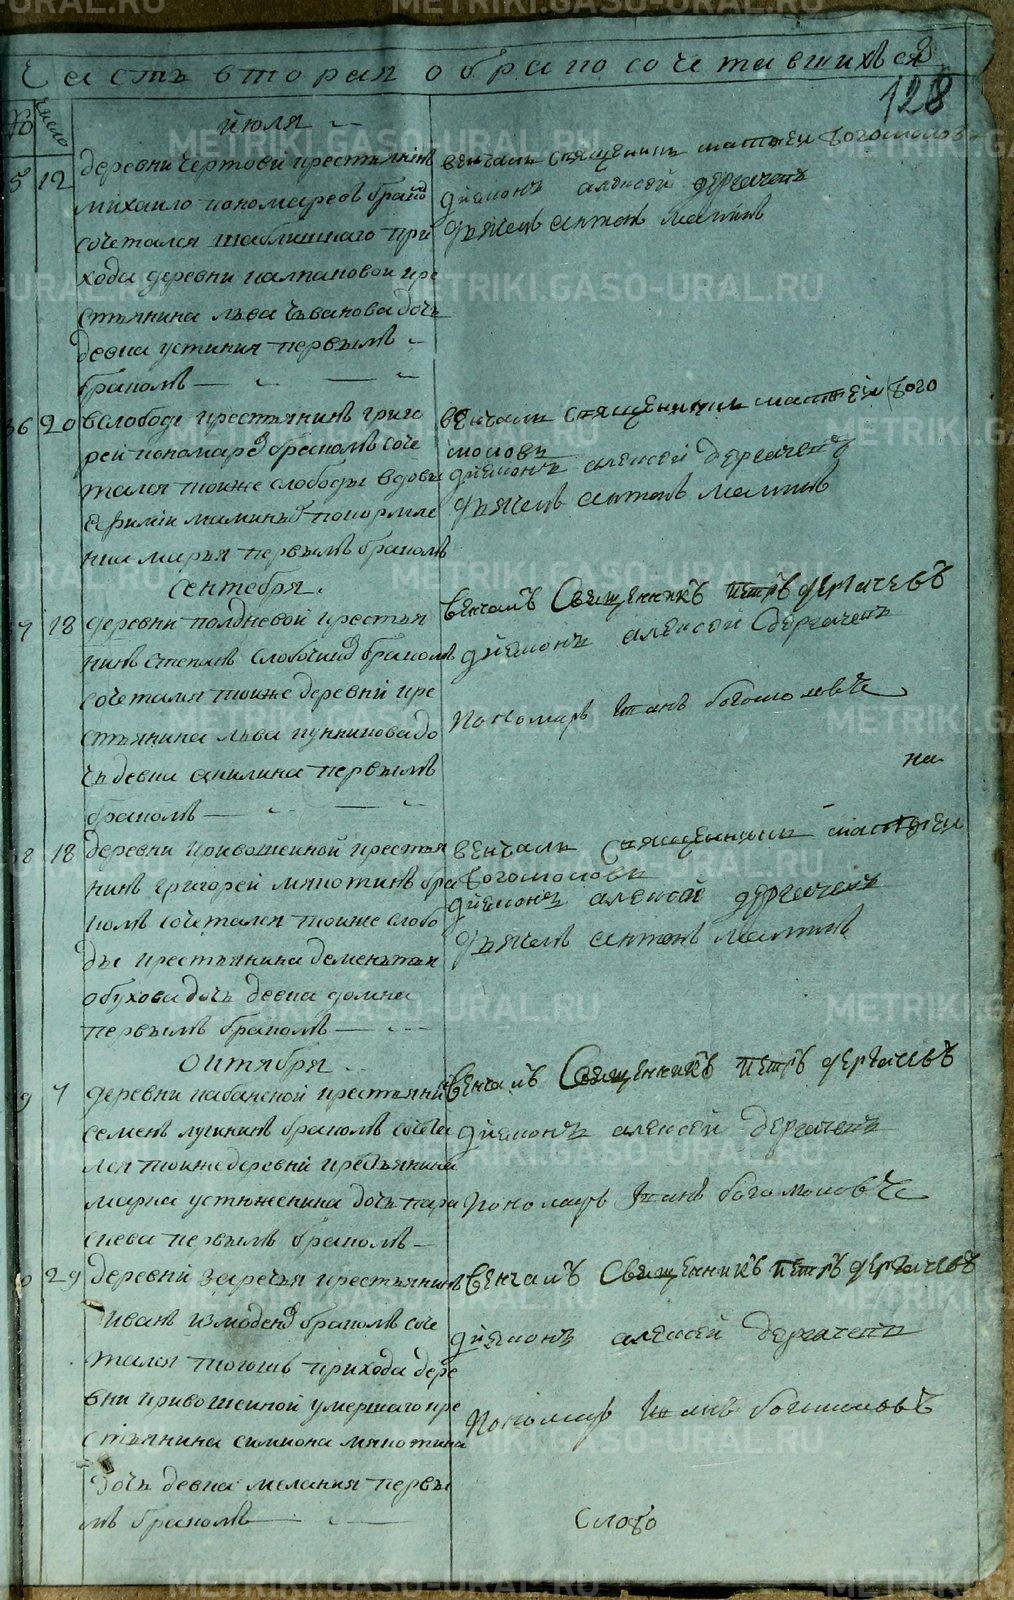 Часть вторая о бракосочетавшихъся
128
№
число
июля
5 12
деревни Чертовы крестьянинъ
михаило пономаревъ бракомъ
сочетался шаблишнаго при
хода деревни калмаковой кре
стьянина льва дочь
девка устиния первымъ
бракомъ
венчалъ священникъ матфеи богомоловъ
диаконъ алексей дергачевъ
дьячекъ антонъ маминъ
36 20
вслободе крестьянинъ григо
рей пономаревъ бракомъ соче
тался тоиже слободы вдовы
маминыхъ покормле
нка марья первымъ бракомъ
венчалъ священникъ матфеи бого
моловъ
диаконъ алексей дергачевъ
дьячекъ антонъ маминъ
сентебря
7 18
деревни полдневой крестья
нинъ степанъ слобочиковъ бракомъ
сочетался тоиже деревни кре
стьянина льва до
чь девка акилина первымъ
бракомъ
венчалъ Священникъ петръ дергачевъ
диаконъ алексей дергачевъ
пономарь иванъ богомоловъ
на
8 18
деревни кривошеиной крестья
нинъ григорей мякотинъ бра
комъ сочетался тоиже слобо
ды крестьянина дементья
обухова дочь девка домна
первымъ бракомъ
венчалъ священникъ матфеи
богомоловъ
диаконъ алексей дергачевъ
дьячекъ антонъ маминъ
октября
9 7
деревни кабанской крестьянинъ
семенъ лукининъ бракомъ сочета
лся тоиже деревни крестьянина
марка устюженина дочь пара
скева первымъ бракомъ
венчалъ Священникъ петръ дергачевъ
диаконъ алексей дергачевъ
пономарь иванъ богомоловъ
29
деревни заречья крестьянинъ
иванъ измоденовъ бракомъ соче
тался тогожъ прихода дере
вни кривошеиной умершаго кре
стьянина симиона мякотина
дочь девка мелания первы
мъ бракомъ
венчалъ Священникъ петръ дергачевъ
диаконъ алексей дергачевъ
пономарь иванъ богомоловъ
слобо
METRIKI.GASO-URAL.RU